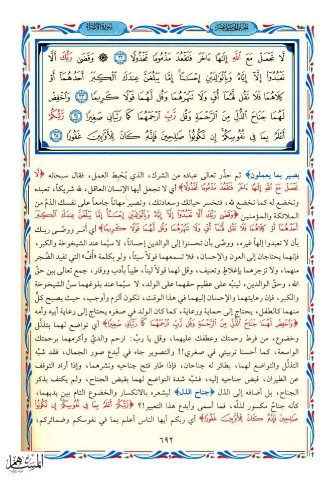 لَّا تَجْعَلْ مَعَ اللَّهِ إِلَٰهًا آخَرَ فَتَقْعُدَ مَذْمُومًا مَّخْذُولًا ۝٢٢ ۞ وَقَضَىٰ رَبُّكَ أَلَّا
تَعْبُدُوا إِلَّا إِيَّاهُ وَبِالْوَالِدَيْنِ إِحْسَانًا إِمَّا يَبْلُغَنَّ عِندَكَ الْكِبَرَ أَحَدُهُمَا أَوْ
كِلَاهُمَا فَلَا تَقُل لَّهُمَا أُفٍّ وَلَا تَنْهَرْهُمَا وَقُل لَّهُمَا قَوْلًا كَرِيمًا ۝٢٣ وَاخْفِضْ
لَهُمَا جَنَاحَ الذُّلِّ مِنَ الرَّحْمَةِ وَقُل رَّبِّ ارْحَمْهُمَا كَمَا رَبَّيَانِي صَغِيرًا ۝٢٤ رَّبُّكُمْ
أَعْلَمُ بِمَا فِي نُفُوسِكُمْ إِن تَكُونُوا صَالِحِينَ فَإِنَّهُ كَانَ لِلْأَوَّابِينَ غَفُورًا ۝٢٥
بصير بما يعملون﴾ ثم حذّر تعالى عباده من الشرك، الذي يُحبط العمل، فقال سبحانه ﴿لَّا
تَجْعَلْ مَعَ اللَّهِ إِلَٰهًا آخَرَ فَتَقْعُدَ مَذْمُومًا مَّخْذُولًا﴾ أي لا تجعل أيها الإنسان العاقل، لله شريكاً، تعبده
وتخضع له كما تخضع لله، فتخسر حياتك وسعادتك، وتصير مهاناً جامعاً على نفسك الذمّ من
الملائكة والمؤمنين ﴿وَقَضَىٰ رَبُّكَ أَلَّا تَعْبُدُوا إِلَّا إِيَّاهُ وَبِالْوَالِدَيْنِ إِحْسَانًا إِمَّا يَبْلُغَنَّ عِندَكَ الْكِبَرَ
أَحَدُهُمَا أَوْ كِلَاهُمَا فَلَا تَقُل لَّهُمَا أُفٍّ وَلَا تَنْهَرْهُمَا وَقُل لَّهُمَا قَوْلًا كَرِيمًا﴾ أي أمر ووصّى ربك
بأن لا تعبدوا إلهاً غيره، ووصّى بأن تحسنوا إلى الوالدين إحساناً، لا سيّما عند الشيخوخة والكبر،
فإنهما يحتاجان إلى العون والإحسان، فلا تسمعهما قولاً سيئاً، ولو بكلمة «أُفّ» التي تفيد الضَّجر
منهما، ولا تزجرهما بإغلاظٍ وتعنيف، وقل لهما قولاً ليناً، طيباً بأدب ووقار، جمع تعالى بين حقّ
الله، وحقّ الوالدين، لينبّه على عظيم حقهما على الولد، لا سيّما عند بلوغهما سنّ الشيخوخة
والكبر، فإن رعايتهما والإحسان إليهما في هذا الوقت، تكون ألزم وأوجب، حيث يصبح كلّ
منهما كالطفل، يحتاج إلى حماية ورعاية، كما كان الولد في صغره يحتاج إلى رعاية أبيه وأمه
﴿وَاخْفِضْ لَهُمَا جَنَاحَ الذُّلِّ مِنَ الرَّحْمَةِ وَقُل رَّبِّ ارْحَمْهُمَا كَمَا رَبَّيَانِي صَغِيرًا﴾ أي تواضع لهما بتذلّل
وخضوع، من فرط رحمتك وعطفك عليهما، وقل يا ربّ: ارحم والديّ وأكرمهما برحمتك
الواسعة، كما أحسنا تربيتي في صغري!! والتصوير جاء في أبدع صور الجمال، فقد شبّه
التذلّل والتواضع لهما، بطائر له جناحان، فإذا طار فتح جناحيه ونشرهما، وإذا أراد التوقف
عن الطيران، قبض جناحيه إليه، فشبّه شدة التواضع لهما بقبض الجناح، ولم يكتف بذكر
الجناح، بل أضافه إلى الذلّ ﴿جناح الذل﴾ ليشعره بالانكسار والخضوع التام بين يديهما،
كأنه جناحٌ مكسور للذلّ، فما أسمى وأبدع هذا التعبير!؟ ﴿رَّبُّكُمْ أَعْلَمُ بِمَا فِي نُفُوسِكُمْ إِن تَكُونُوا
صَالِحِينَ فَإِنَّهُ كَانَ لِلْأَوَّابِينَ غَفُورًا﴾ أي ربكم أيها الناس أعلم بما في نفوسكم وضمائركم،
٦٩٢